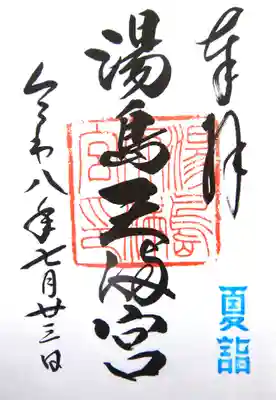 奉拝
夏詣
湯島天満宮
令和八年七月廿三日